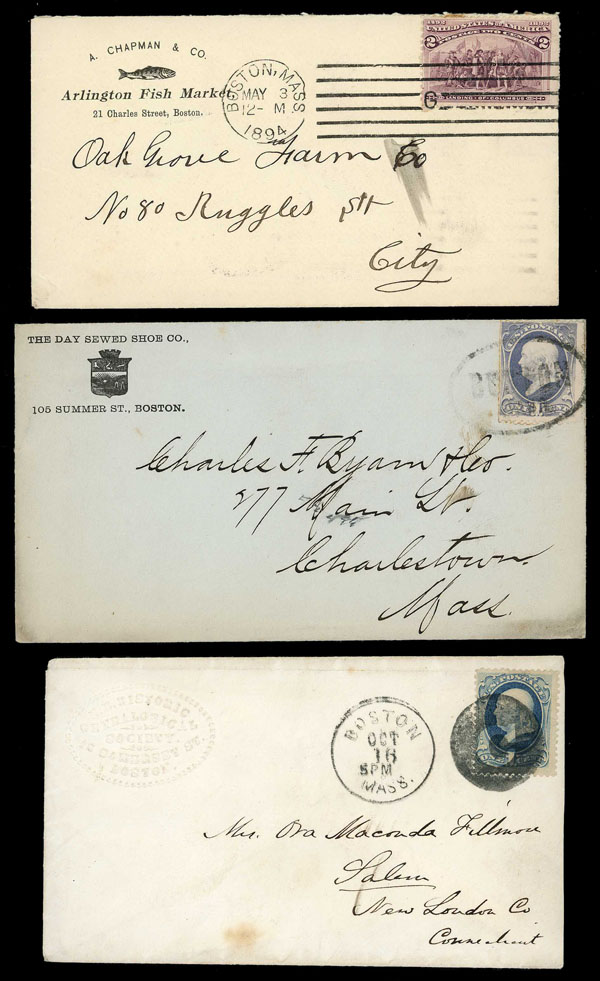 A. CHAPMAN & CO.
Arlington Fish Market,
21 Charles Street, Boston.
BOSTON, MASS
MAY 3
12-M
1894
1492 1892
UNITED STATES OF AMERICA
POSTAGE TWO CENTS
2 2
LANDING OF COLUMBUS
Oak Grove Farm Co
No 80 Ruggles St
City
THE DAY SEWED SHOE CO.,
105 SUMMER ST., BOSTON.
U.S. POSTAGE
BOSTON
Charles F. Byam & Co.
277 Main St.
Charlestown.
Mass.
HISTORIC
GENEALOGICAL
SOCIETY.
BOSTON
BOSTON
OCT
16
5PM
MASS.
U.S. POSTAGE
Mrs. Ora Maconda Fillmore
Salem
New London Co
Connecticut